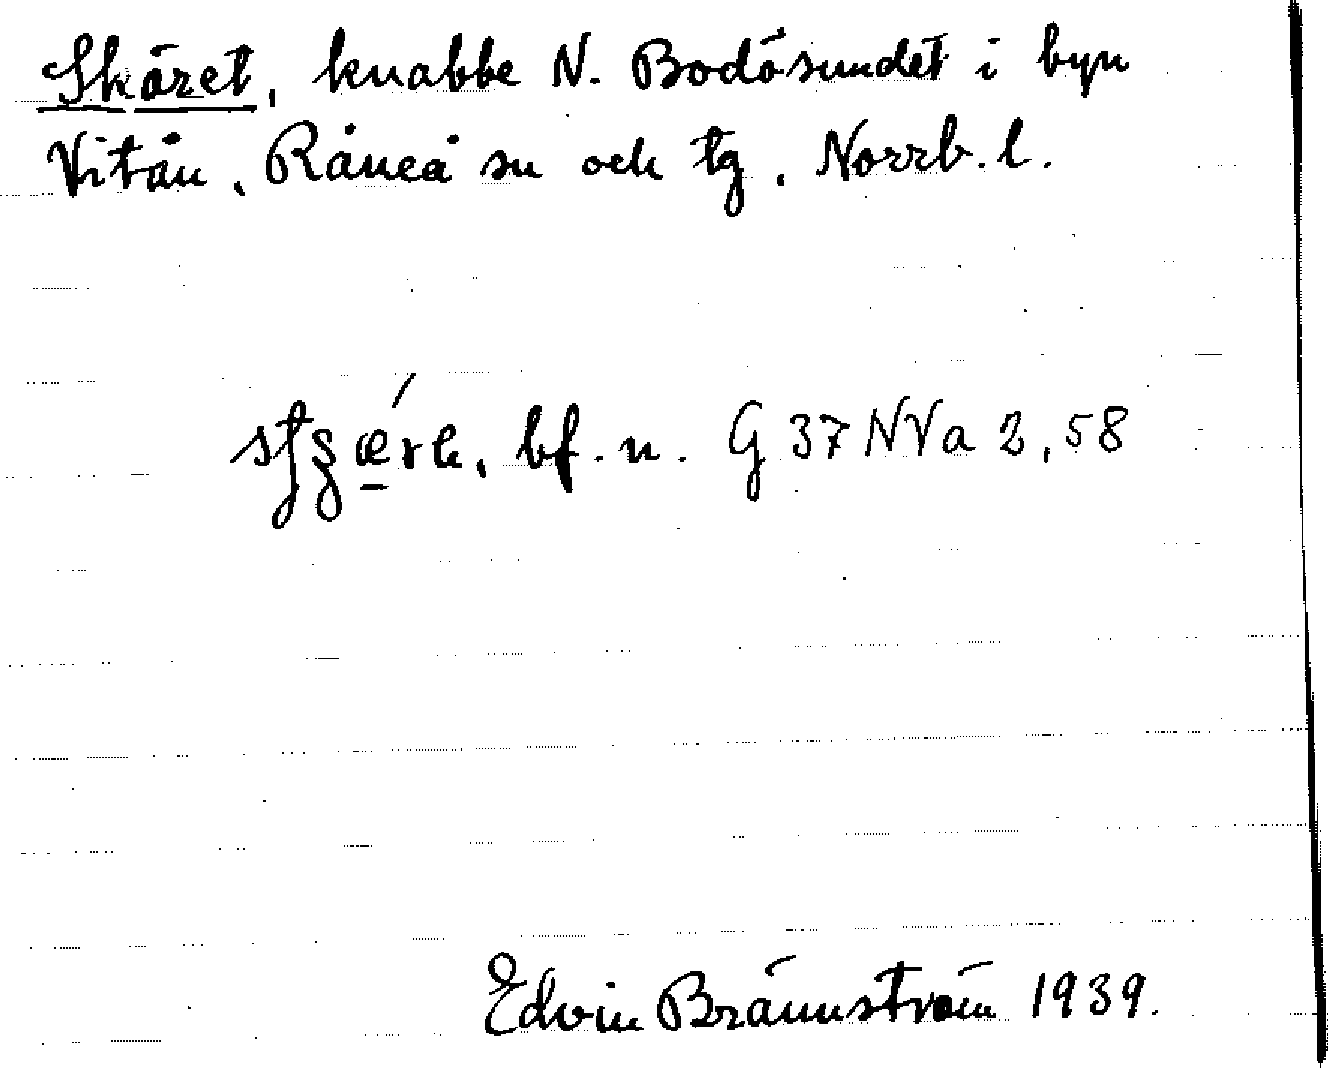 Skäret, knabbe N. Bodösundet i byn
Vitån, Råneå sn och tg, Norrb. l.
bf. n. G 37 NVa 2, 58
Edvin Brännström 1939.